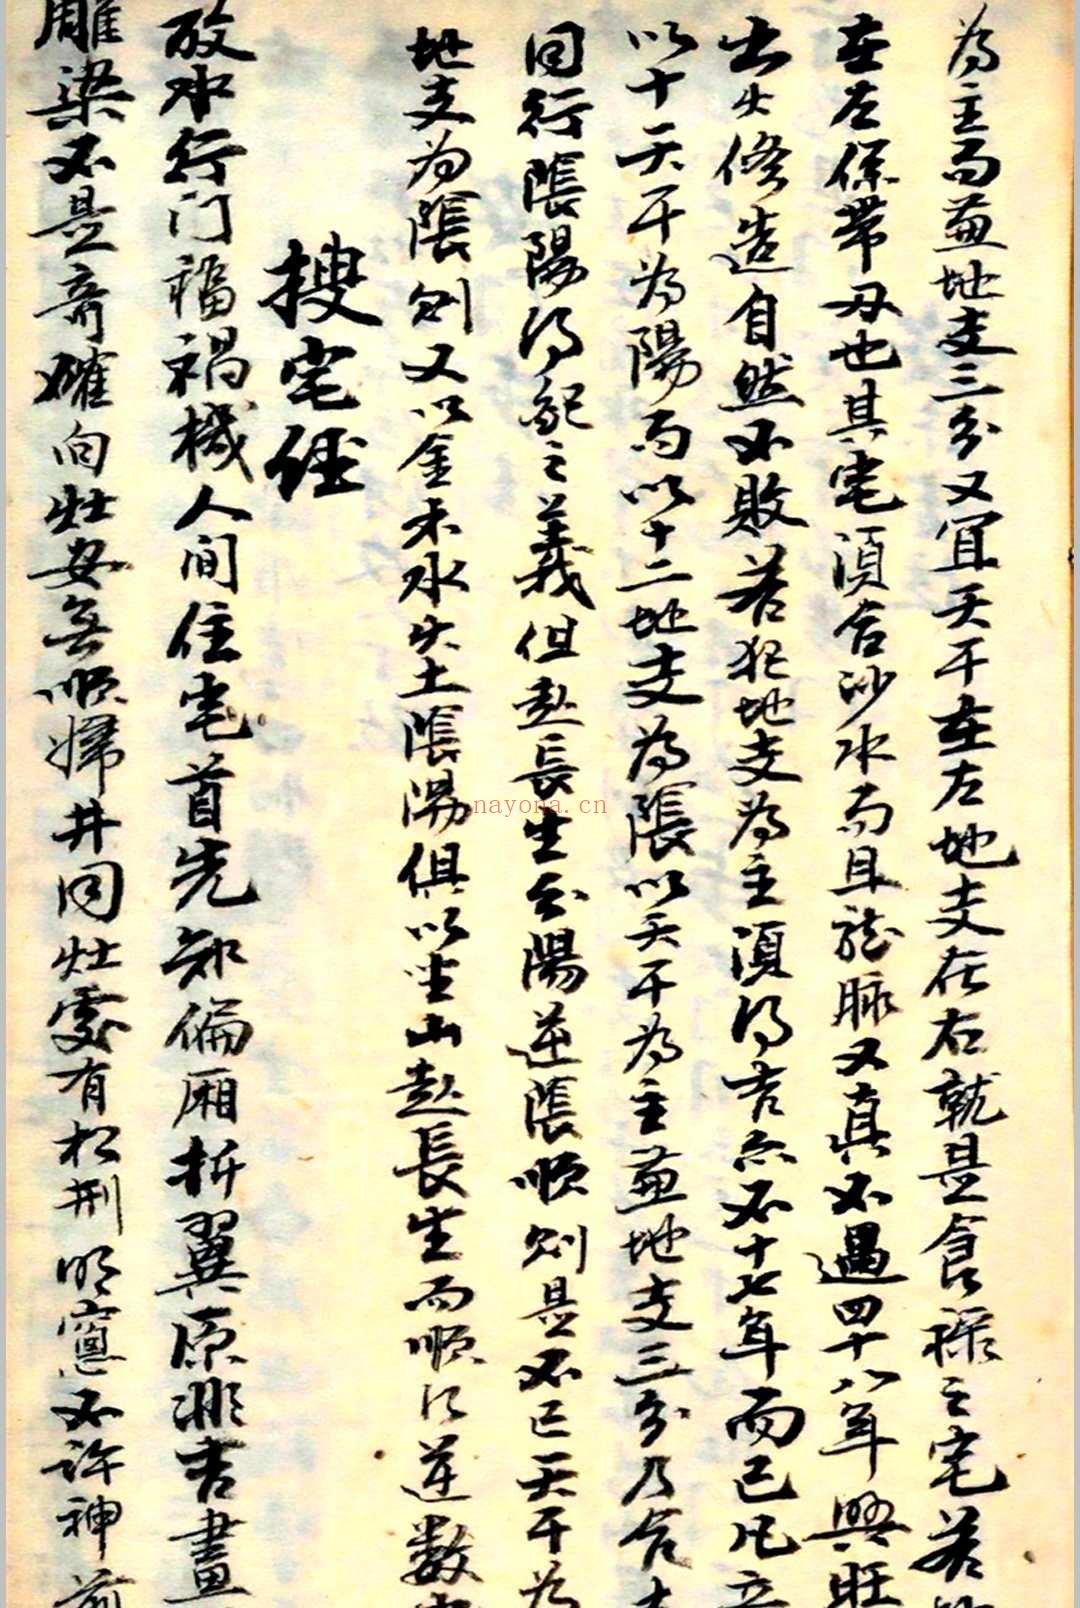 為主而兼地支三分又宜天干在左地支在右就是食祿之宅若
在左係帶丑也其宅須合沙水而且龍脉又真不過四十八年興旺
出火修造自然不敗若犯地支為主須得吉亦不十七年而已凡立
以十天干為陽而以十二地支為陰以天干為主兼地支三分乃合
同行陰陽得配之義但起長生分陽逆陰順則是不已天干為
地支為陰則又以金木水火土陰陽俱以坐山起長生而順行逆數
搜宅經
放水行门福禍機人间住宅首先知偏厢折翼原非吉畫
雕梁不是奇確向灶安無順婦井同灶處有松刑明窻不許神前
nayona.cn